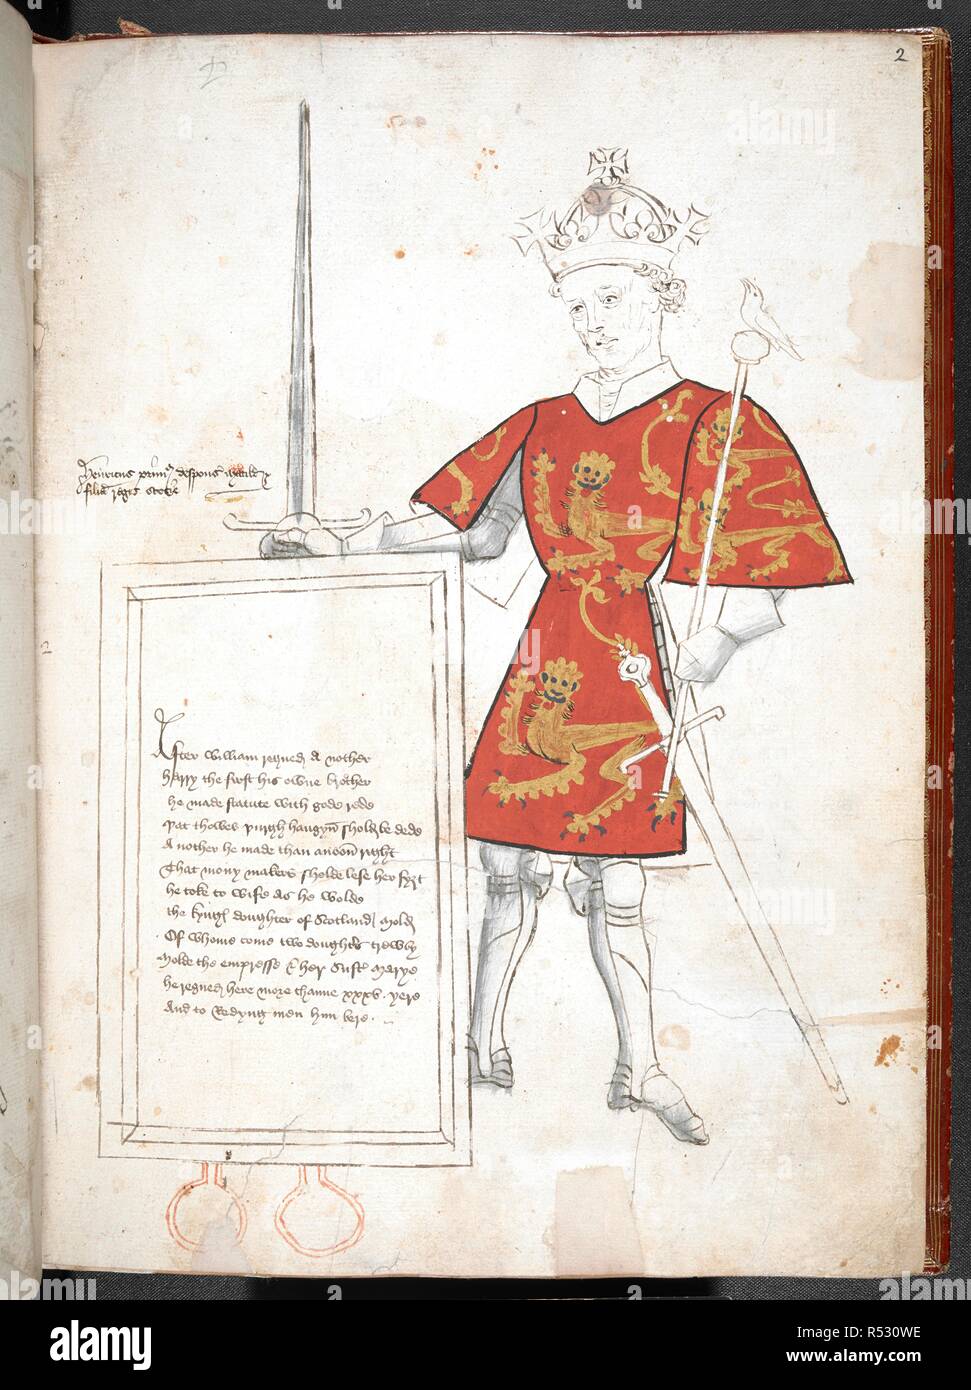 2
Henricus primus despons
filia regis scotie
After william regned A nother
harry the first his owne brother
he made statute with gode rede
Pat theves purgh hangyn sholde be dede
A nother he made than anoon right
That mony makers sholde lese her syȝt
he toke to wife as he wolde
the kyng doughter of Scotland molde
Of whome come two doughters trewly
Molde the empresse & her Suster Marye
he regned here more thanne xxxv yere
And to Redyng men hym bere
2
alamy
Image ID: R530WE
www.alamy.com